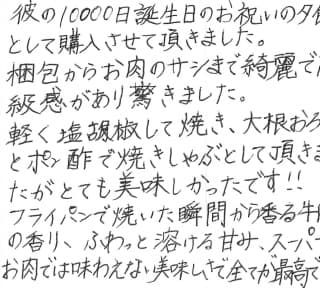 彼の10000日誕生日のお祝いの夕食
として購入させて頂きました。
梱包からお肉のサシまで綺麗で
級感があり驚きました。
軽く塩胡椒して焼き、大根おろ
とポン酢で焼きしゃぶとして頂きま
たがとても美味しかったです!!
フライパンで焼いた瞬間から香る牛
の香り、ふわっと溶ける甘み、スーパー
お肉では味わえない美味しさで全てが最高で